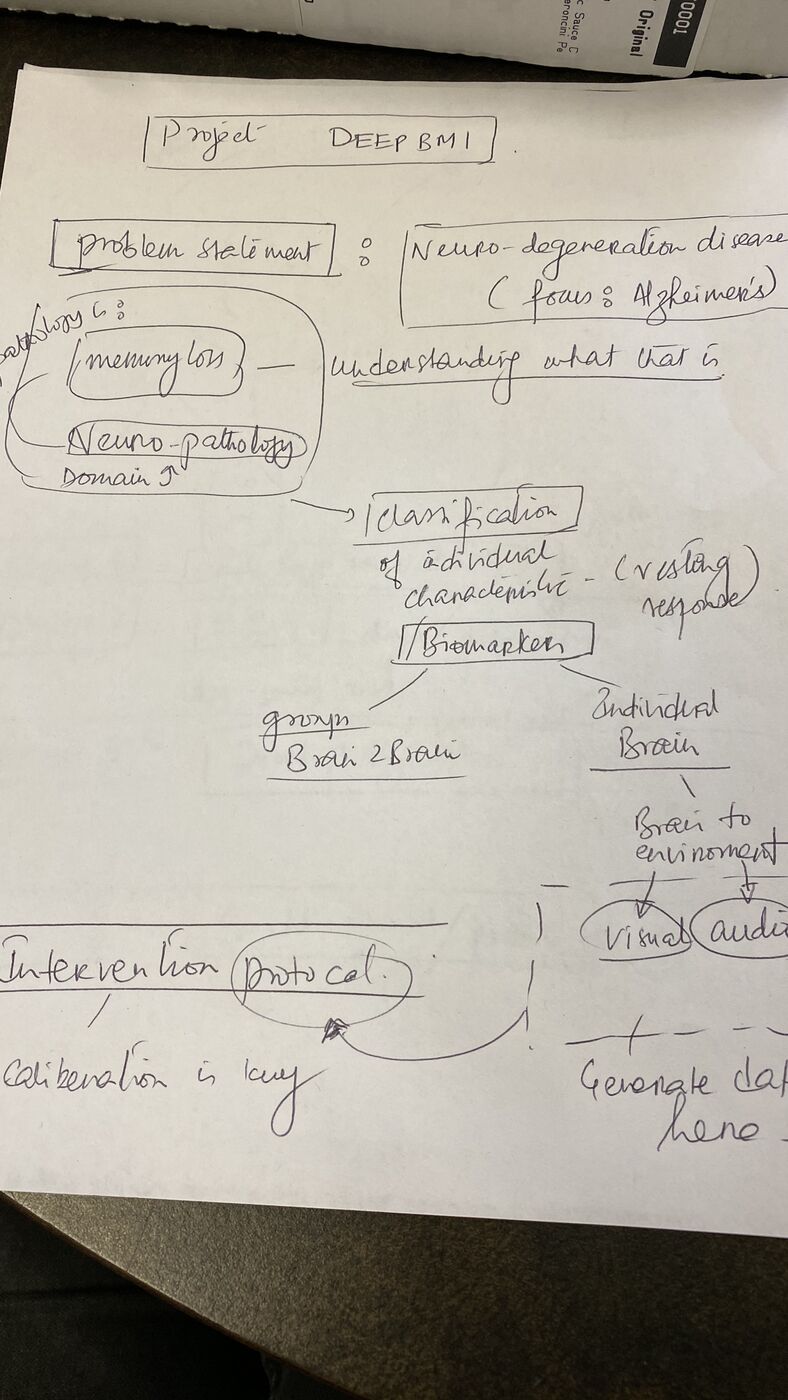 0001
Original
c Sauce C
eroncini Pe
Project DEEP BMI
problem statement : Neuro-degeneration disease
(focus : Alzheimer's)
pathology is :
memory loss — understanding what that is
Neuro-pathology
Domain
classification
of individual
characteristic - (resting
response)
Biomarkers
groups
Brain 2 Brain
Individual
Brain
Brain to
enviroment
visual audi
Intervention protocal.
Caliberation is key
Generate dat
here